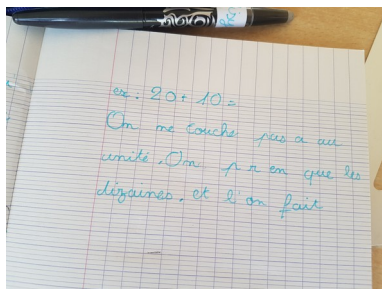 ex : 20 + 10 =
On me touche pas a au
unité. On p r en que les
dizaines. et l'on fait